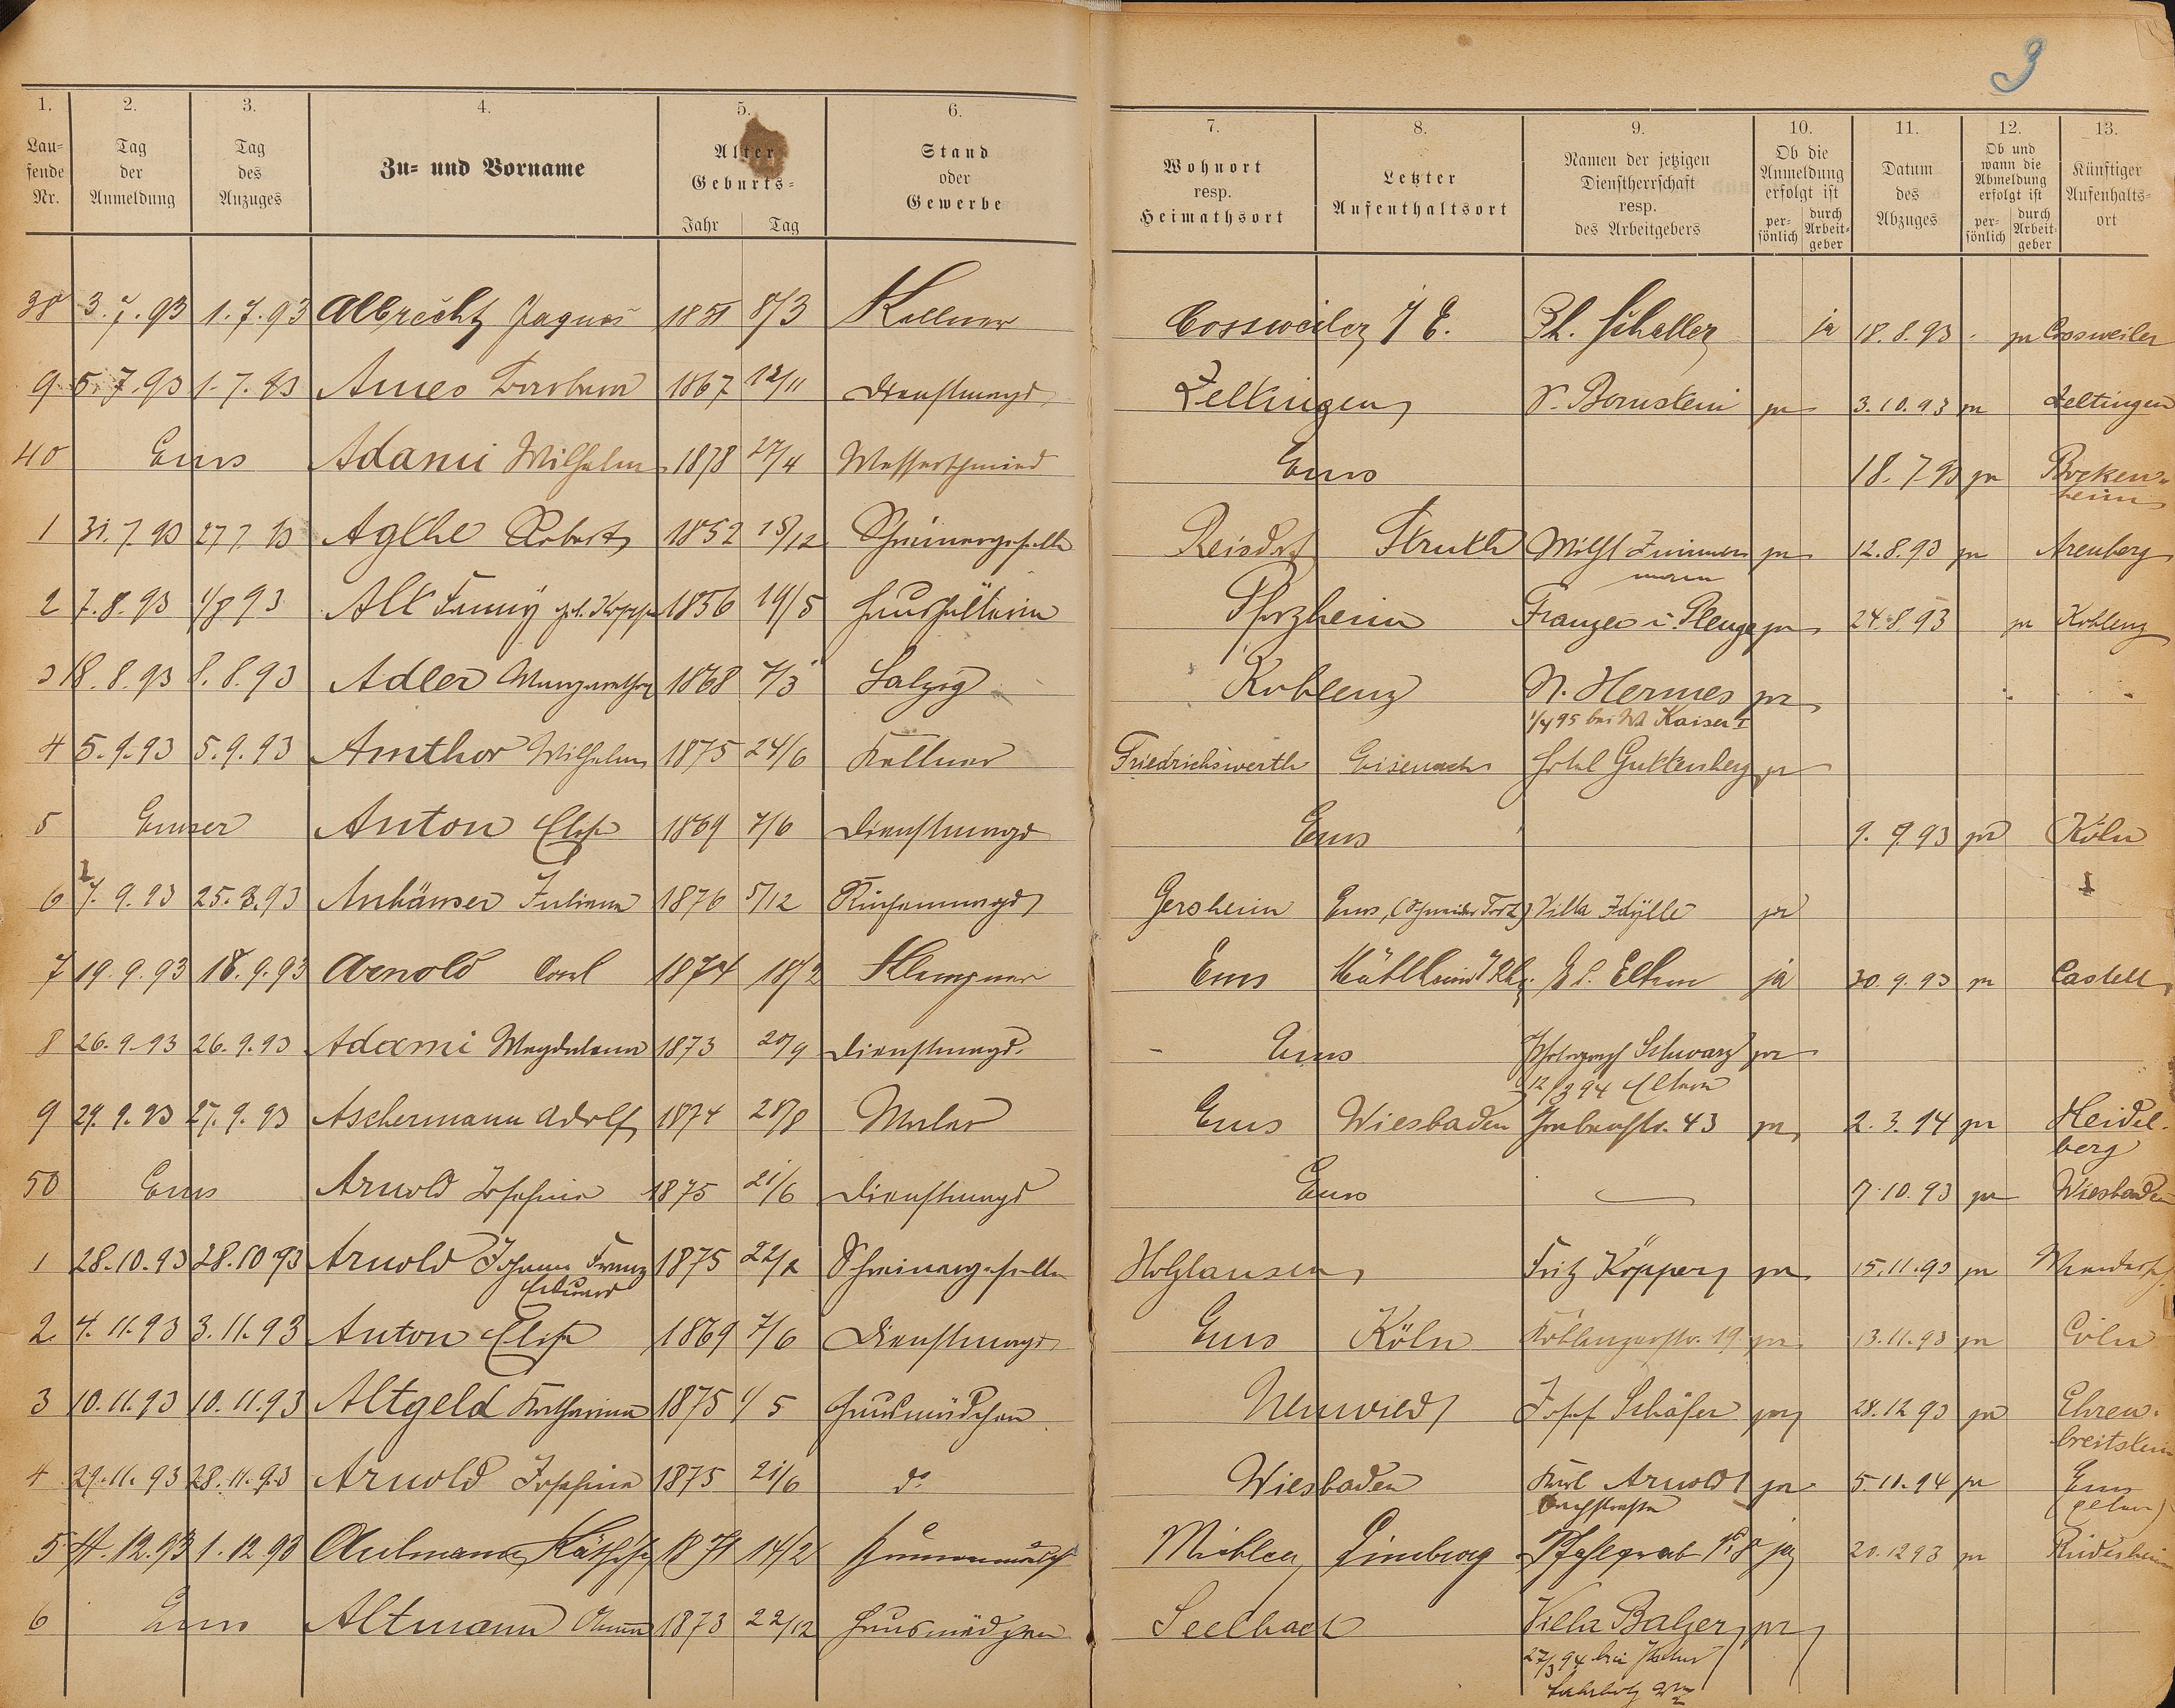 3
1. 2. 3. 4. 5. 6. 7. 8. 9. 10. 11. 12. 13.
Lau=
fende
Nr.
Tag
der
Anmeldung
Tag
des
Anzuges
Zu= und Vorname
Alter
Geburts=
Jahr Tag
Stand
oder
Gewerbe
Wohnort
resp.
Heimathsort
Letzter
Aufenthaltsort
Namen der jetzigen
Dienstherrschaft
resp.
des Arbeitgebers
Ob die
Anmeldung
erfolgt ist
per=
sönlich
durch
Arbeit=
geber
Datum
des
Abzuges
Ob und
wann die
Abmeldung
erfolgt ist
per=
sönlich
durch
Arbeit=
geber
Künftiger
Aufenthalts=
ort
38 3.7.93 1.7.93 Albrecht 1851 8/3 Kellner Cossweiler i/E. Ph. Scheller ja 18.8.93 ja Cossweiler
9 5.7.93 1.7.93 Ames Barbara 1867 12/11 Dienstmagd Zeltingen V. Bornstein ja 3.10.93 ja Zeltingen
40 Ems Adami Wilhelm 1878 27/4 Messerschmied Ems 18.7.93 ja Bocken=
heim
1 31.7.93 27.7.93 Agthe Robert 1852 15/12 Schreinergeselle Reisdorf Struth Wilh Zimmer ja 12.8.93 ja Arenberg
mann
2 7.8.93 1/8 93 Alt Fanny geb. 1856 19/5 Haushälterin Pforzheim Franzen u. Plenge ja 24.8.93 ja Koblenz
3 18.8.93 8.8.93 Adler Margaretha 1868 7/3 Salzig Koblenz N. Hermes ja
1/4 95 bei W. Kaiser I
4 5.9.93 5.9.93 Amthor Wilhelm 1875 24/6 Kellner Friedrichswerth Eisenach Hotel Guttenberg ja
5 Emser Anton Elise 1869 7/6 Dienstmagd Ems 9.9.93 ja Köln
6 7.9.93 25.8.93 Anhäuser Juliana 1876 5/12 Küchenmagd Gersheim Ems, (Schneider Villa Idylle ja
7 19.9.93 18.9.93 Arnold Carl 1874 18/2 Klempner Ems Mühlheim ja 30.9.93 ja Castell
8 26.9.93 26.9.93 Adami Magdalena 1873 20/9 Dienstmagd. Ems Photograph Schwarz ja
12/3 94 Eltern
9 29.9.93 27.9.93 Aschermann Adolf 1874 28/8 Maler Ems Wiesbaden Grabenstr. 43 ja 2.3.94 ja Heidel=
berg
50 Ems Arnold Josefine 1875 21/6 Dienstmagd Ems 7.10.93 ja Wiesbaden
1 28.10.93 28.10.93 Arnold Johann Franz 1875 22/2 Schreinergeselle Holzhausen Fritz Köpper ja 15.11.93 ja
Eduard
2 4.11.93 3.11.93 Anton Elise 1869 7/6 Dienstmagd Ems Köln Koblenzerstr. 19 ja 13.11.93 ja Cöln
3 10.11.93 10.11.93 Altgeld Katharina 1875 1/5 Hausmädchen Neuwied Josef Schäfer ja 28.12.93 ja Ehren=
breitstein
4 29.11.93 28.11.93 Arnold Josefine 1875 21/6 do Wiesbaden Karl Arnold ja 5.11.94 ja Ems
Bachstrasse (Eltern)
5 4.12.93 1.12.93 Aulmann 1871 14/2 Miehlen Limburg Pfahlgrab No 8 ja 20.12.93 ja Rüdesheim
6 Ems Altmann Anna 1873 22/12 Hausmädchen Seelbach Villa Balzer ja
27/3 94 bei